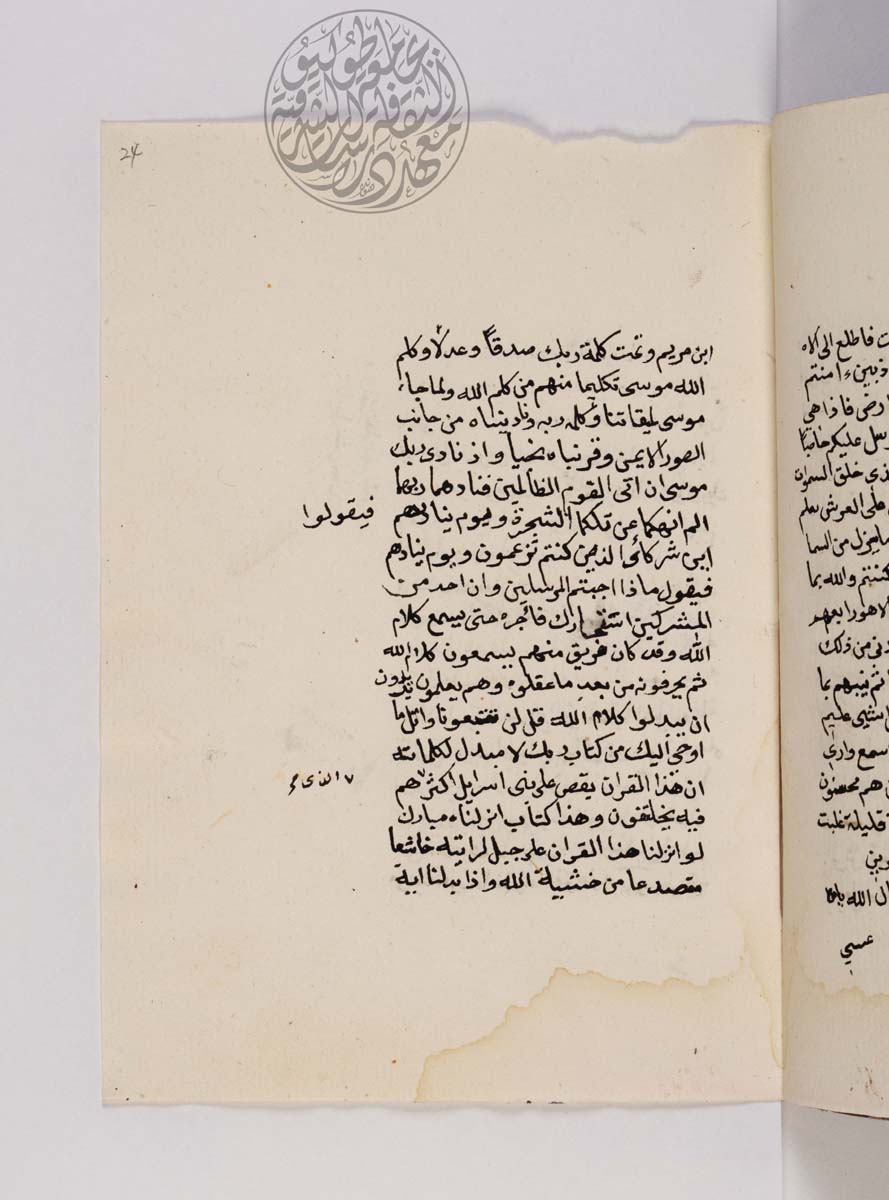 24
ابن مريم وتمت كلمة ربك صدقاً وعدلا وكلم
الله موسى تكليما منهم من كلم الله ولما جاء
موسى لميقاتنا وكلمه ربه وناديناه من جانب
الطور الايمن وقربناه نجيا واذ نادى ربك
موسى ان ائت القوم الظالمين فنادهما ربهما
الم انهكما عن تلكما الشجرة ويوم يناديهم
فيقولوا
اين شركائى الذين كنتم تزعمون ويوم ينادهم
فيقول ماذا اجبتم المرسلين وان احد من
المشركين استجارك فاجره حتى يسمع كلام
الله وقد كان فريق منهم يسمعون كلام الله
ثم يحرفونه من بعد ما عقلوه وهم يعلمون يريدون
ان يبدلوا كلام الله قل لن تتبعونا واتل ما
اوحى اليك من كتاب ربك لا مبدل لكلماته
ان هذا القران يقص على بنى اسرايل اكثرهم
الذى
فيه يختلفون وهذا كتاب انزلناه مبارك
لو انزلنا هذا القران على جبل لرايته خاشعا
متصدعا من خشية الله واذا بدلنا اية
ت فاطلع الى الاه
ذبين ءامنتم
رض فاذا هى
سل عليكم حاصبا
ذى خلق السموات
على العرش يعلم
ما ينزل من السما
كنتم والله بما
الا هو رابعهم
دنى من ذلك
ثم ينبهم بما
اسمع وارى
هم محسنون
قليلة غلبت
ال الله يا
عيسى
جامعة طوكيو
معهد دراسات الثقافة الشرقية